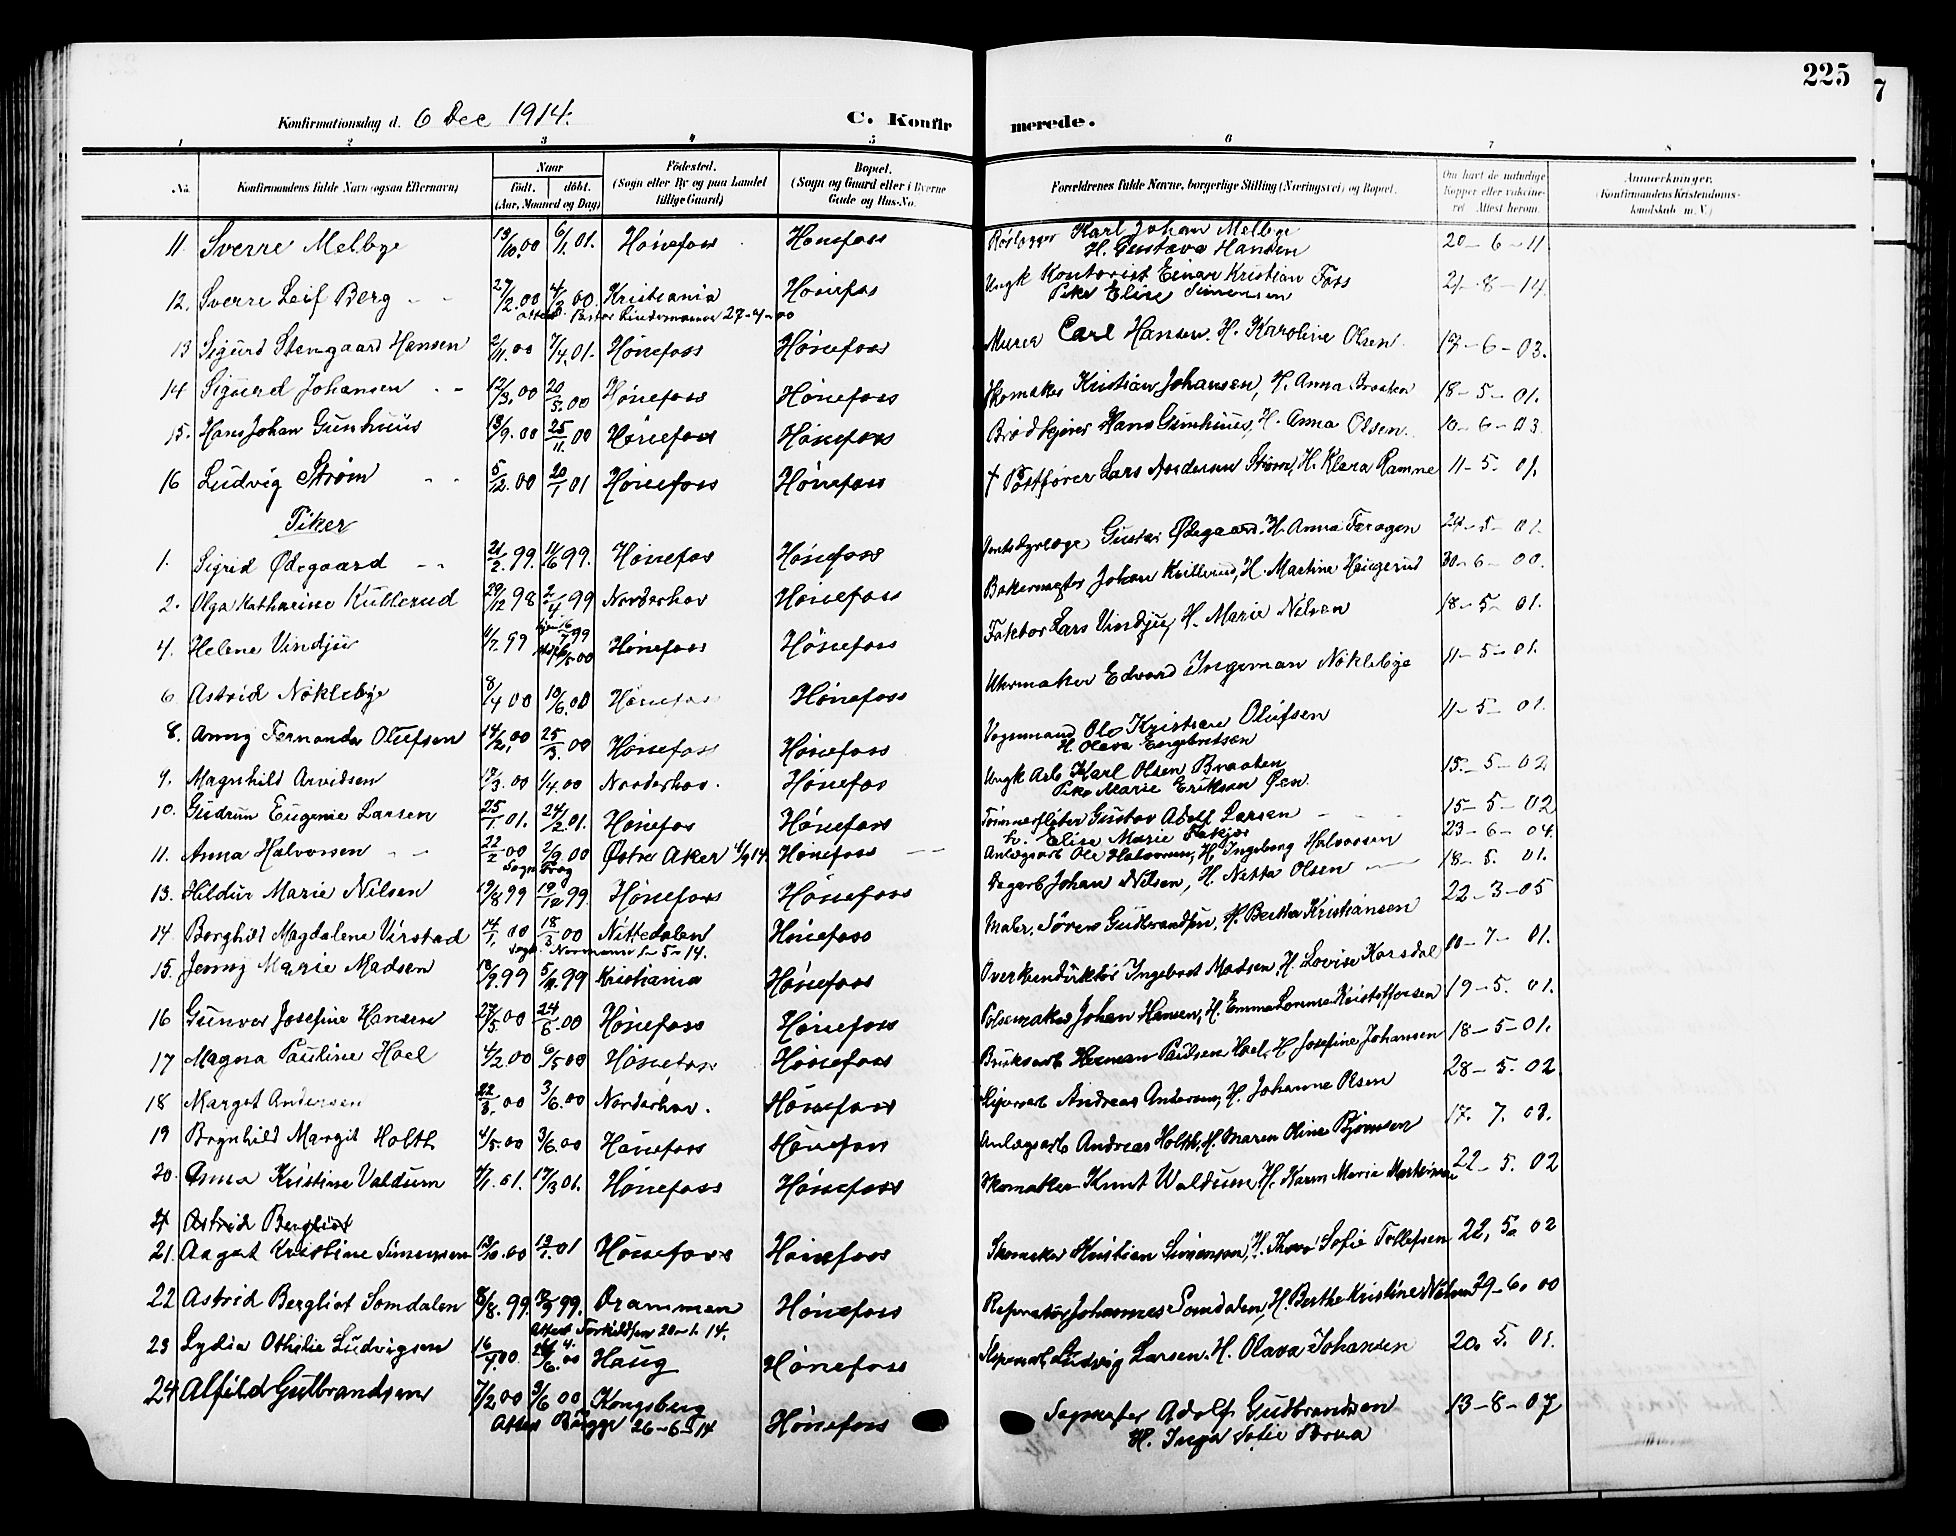 225
Konfirmationsdag d. 6 Dec 1914. C. Konfirmerede.
1 2 3 4 5 6 7 8
No. Konfirmandens fulde Navn (ogsaa Efternavn) Naar født. døbt. (Aar, Maaned og Dag) Fødested. (Sogn eller By og paa Landet tillige Gaard) Bopæl. (Sogn og Gaard eller i Byerne Gade og Hus-No. Forældrenes fulde Navne, borgerlige Stilling (Næringsvei) og Bopæl. Om havt de naturlige Kopper eller vaccineret. Attest herom. Anmerkninger. (Konfirmandens Kristendomskundskab m. V.)
11. Sverre Melbye 13/10.00 6/1.01. Hönefoss Hönefoss Rörlægger Karl Johan Melbye 20-6-11
H. Gustava Hansen
12. Sverre Leif Berg 27/2.00 4/3.00. Kristiania Hönefos Ungk Kontorist Einar Kristian Foss 21-8-14
Attest Pastor Lindemann 27-4-00 Pike Elise Simensen
13 Sigurd Stengaard Hansen 2/11.00 7/4.01. Hönefoss Hönefoss Murer Carl Hansen. H. Karoline Olsen 17-6-03.
14 Sigurd Johansen 12/3.00 20/5.00 Hönefoss Hönefoss Skomaker Kristian Johansen, H. Anna Braaten 18-5-01.
15. Hans Johan Gunhuus 13/9.00 25/11.00 Hönefoss Hönefoss Brødkjører Hans Gunhuus, H. Anna Olsen. 10-6-03
16 Ludvig Strøm 5/12.00 20/1 01 Hönefoss Hönefoss † Postfører Lars Andersen Strøm, H. Klara Ramne 11-5. 01.
Piker
1. Sigrid Ødegaard 21/2.99. 11/6 99. Hönefos Hönefoss Amtsdyrlæge Gustav Ødegaard. H. Anna Faragen 24-5-01.
2. Olga Katharine Kullerud 29/12 98 2/4 99 Norderhov Hönefoss Bakermester Johan Kullerud, H. Martine Haugerud 30-6-00.
4. Helene Vindju 4/7.99 hjem 16/7 99 Hönefoss Hönefoss Faktor Lars Vindju, H. Marie Nilsen 18-5-01.
6/5 00
6 Astrid Nöklebye 8/4 00 10/6.00 Hönefos Hönefoss Uhrmaker Edvard Ingeman Nöklebye 11-5-01.
8. Anny Fernanda Olufsen 14/2.00 25/3.00 Hönefoss Hönefoss Vognmand Ole Kristian Olufsen 11-5-01.
H. Olava Engebretsen
9. Magnhild Arvidsen 19/3.00 1/4.00 Norderhov. Hönefos Ungk Arb Karl Olsen Braaten 15-5-02
Pike Marie Eriksen Øen.
10. Gudrun Eugenie Larsen 25/1.01. 24/2.01. Hönefos Hönefoss Tømmerfløter Gustav Adolf Larsen 15-5-02
h. Elise Marie
11. Anna Halvorsen 22/2 00 2/9.00 Østre Aker 4/9 14. Hönefoss Anlægsarb Ole Halvorsen, H. Ingeborg Halvorsen 23-6-04.
13. Hildur Marie Nilsen 19/8 99 19/12 99. Hönefoss Hönefoss Dagarb Johan Nilsen, H. Netta Olsen 18-5. 01.
14. Borghild Magdalene Virstad 14/1. 00 18/3.00 Nittedalen Hönefoss Maler, Sören Gudbrandsen, H. Berthe Kristiansen 22-3-05
Sogn. Normann 1-5-14.
15. Jenny Marie Madsen 18/9.99 5/11.99 Kristiania Hönefoss Overkondüktör Ingebret Madsen H. Lovise Korsdal 10-7-01.
16 Gunvor Josefine Hansen 27/5 00 24/6.00 Hönefoss Hönefoss Pølsemaker Johan Hansen, H. Emma Lorense Kristoffersen 19-5. 01.
17 Magna Pauline Hoel 4/2.00 6/5 00 Hönefos Hönefoss Bruksarb Herman Paulsen Hoel. H Josefine Johansen 18-5-01.
18 Margot Andersen 22/3. 00 3/6.00 Norderhov. Hönefoss Sliperarb Andreas Andersen, H. Johanne Olsen 28-5. 02
19 Brynhild Margit Holth 4/5.00 3/6.00 Hönefoss Hönefoss Anlægsarb Andreas Holth, H. Maren Oline Bjørnsen 17. 7. 03.
20. Anna Kristine Valdum 4/1.01. 17/3 01. Hönefoss Hönefoss Skomaker Knut Waldum, H. Karen Marie Martinsen 22-5. 02
21 Astrid Bergliot
21. Aagot Kristine Simensen 13/10.00 13/1.01 Hönefoss Hönefoss Skomaker Kristian Simensen, H. Thora Sofie Tollefsen 22, 5. 02
22 Astrid Bergliot Somdalen 8/8. 99. 17/9 99. Drammen Hönefoss Reparatør Johannes Somdalen, H. Berthe Kristine Nilsen 29-6. 00
23 Lydia Othilie Ludvigsen 16/4.00. 24/6.00 Haug Hönefoss Sliperarb Ludvig Larsen. H. Olava Johansen 20. 5. 01.
24 Alfild Gulbrandsen 7/2.00 3/6 00 Kongsberg Hönefoss Sagmester Adolf Gudbrandsen 13-8-07
Attest Bugge 26-6-14 H. Inga Sofie